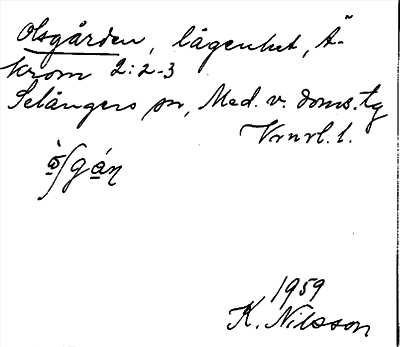 Olsgården, lägenhet, Ä-
krom 2:2-3
Selångers sn, Med. v. doms. tg
Vrnrl.l.
1959
K. Nilsson